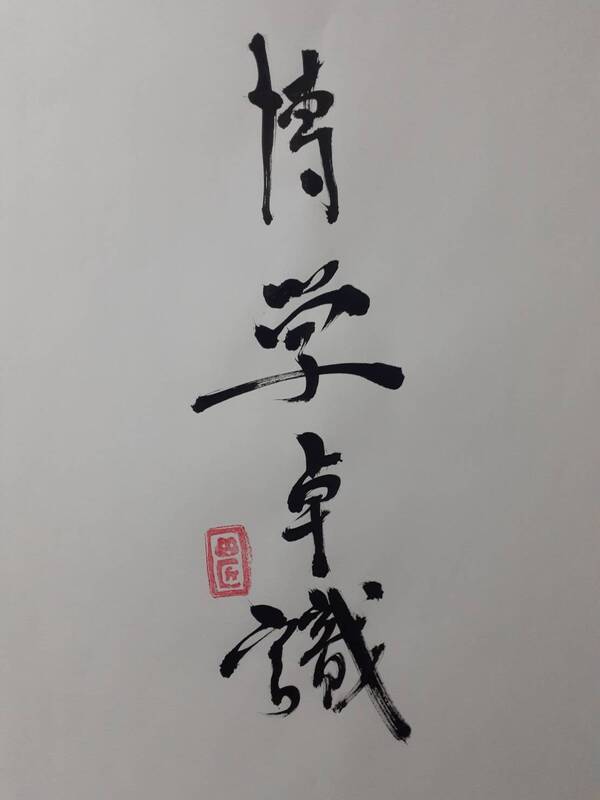 博学卓識